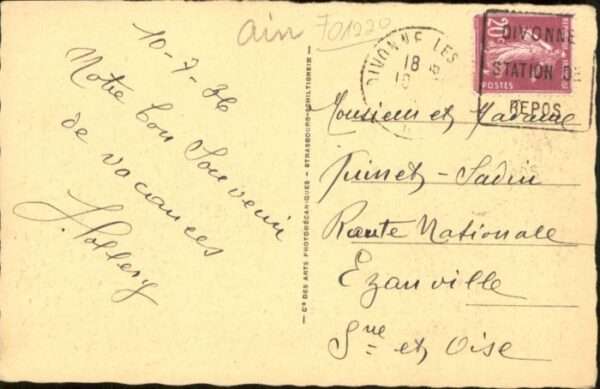 Ain
701220
10-7-36
Notre bon Souvenir
de vacances
DIVONNE LES
18
20
POSTES
DIVONNE
STATION DE
REPOS
Monsieur et Madame
Route Nationale
Ezanville
Sne et Oise
Cie DES ARTS PHOTOMÉCANIQUES - STRASBOURG-SCHILTIGHEIM